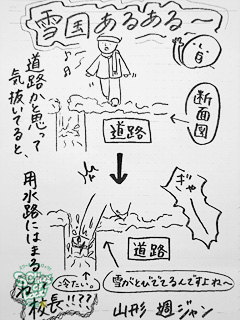 雪国あるある〜
道路かと思って
気抜いてると、
用水路にはまる
断面図
道路
ぎゃ
道路
冷たい。
!!??
雪がとびでてるんですよね〜
校長!!??
山形 週ジャン